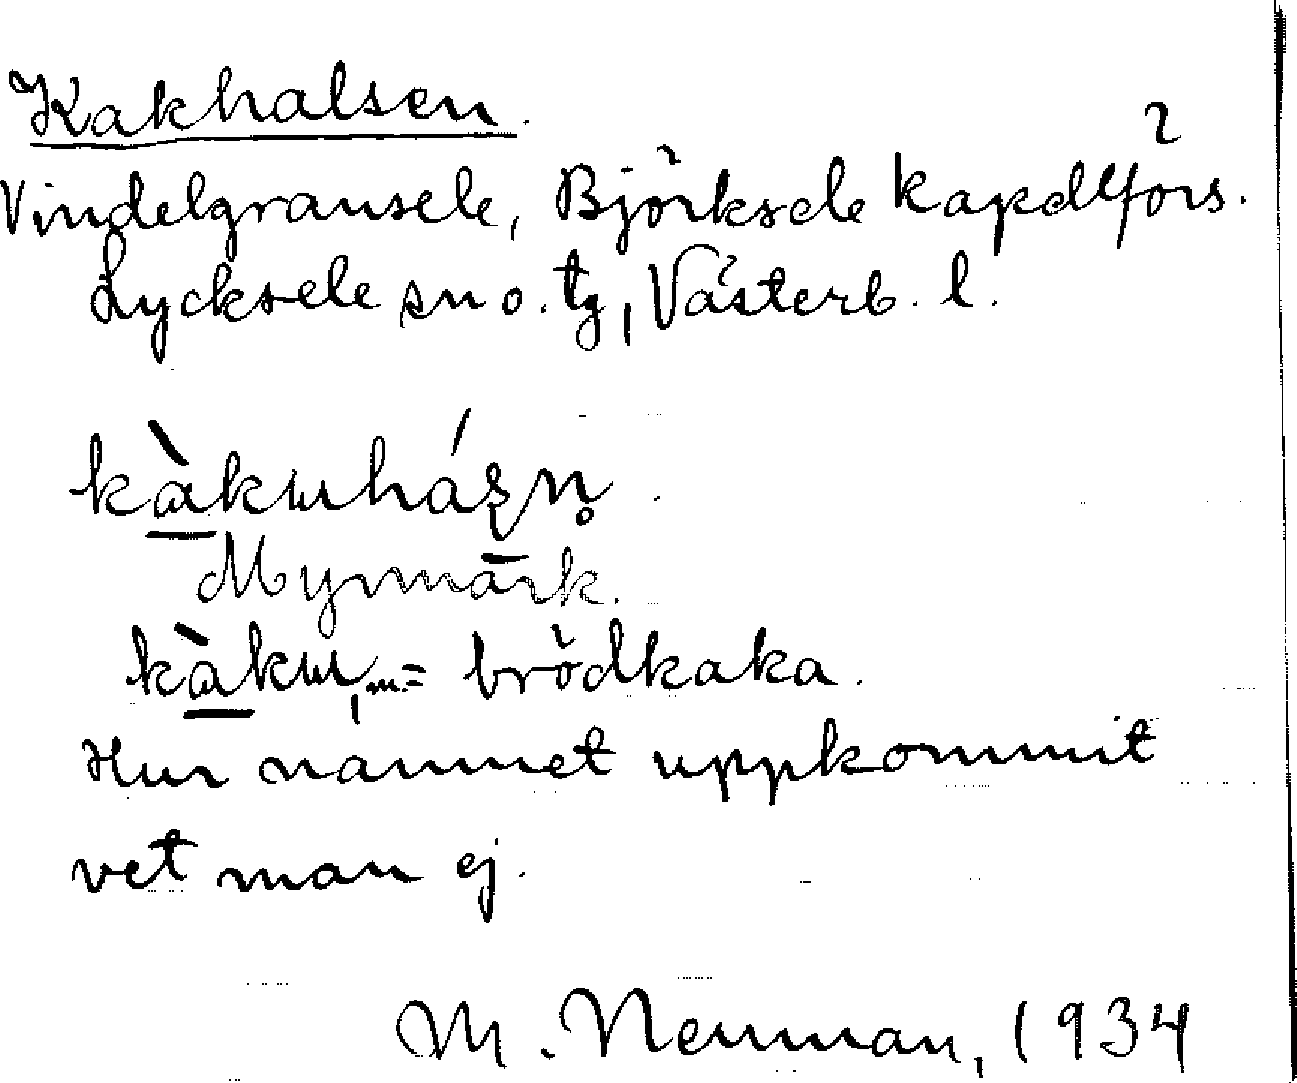 Kakhalsen.
Vindelgransele, Björksele kapellförs.
Lycksele sn o. tg, Västerb. l.
Myrmark.
m. = brödkaka.
Hur namnet uppkommit
vet man ej.
M. Neuman, 1934